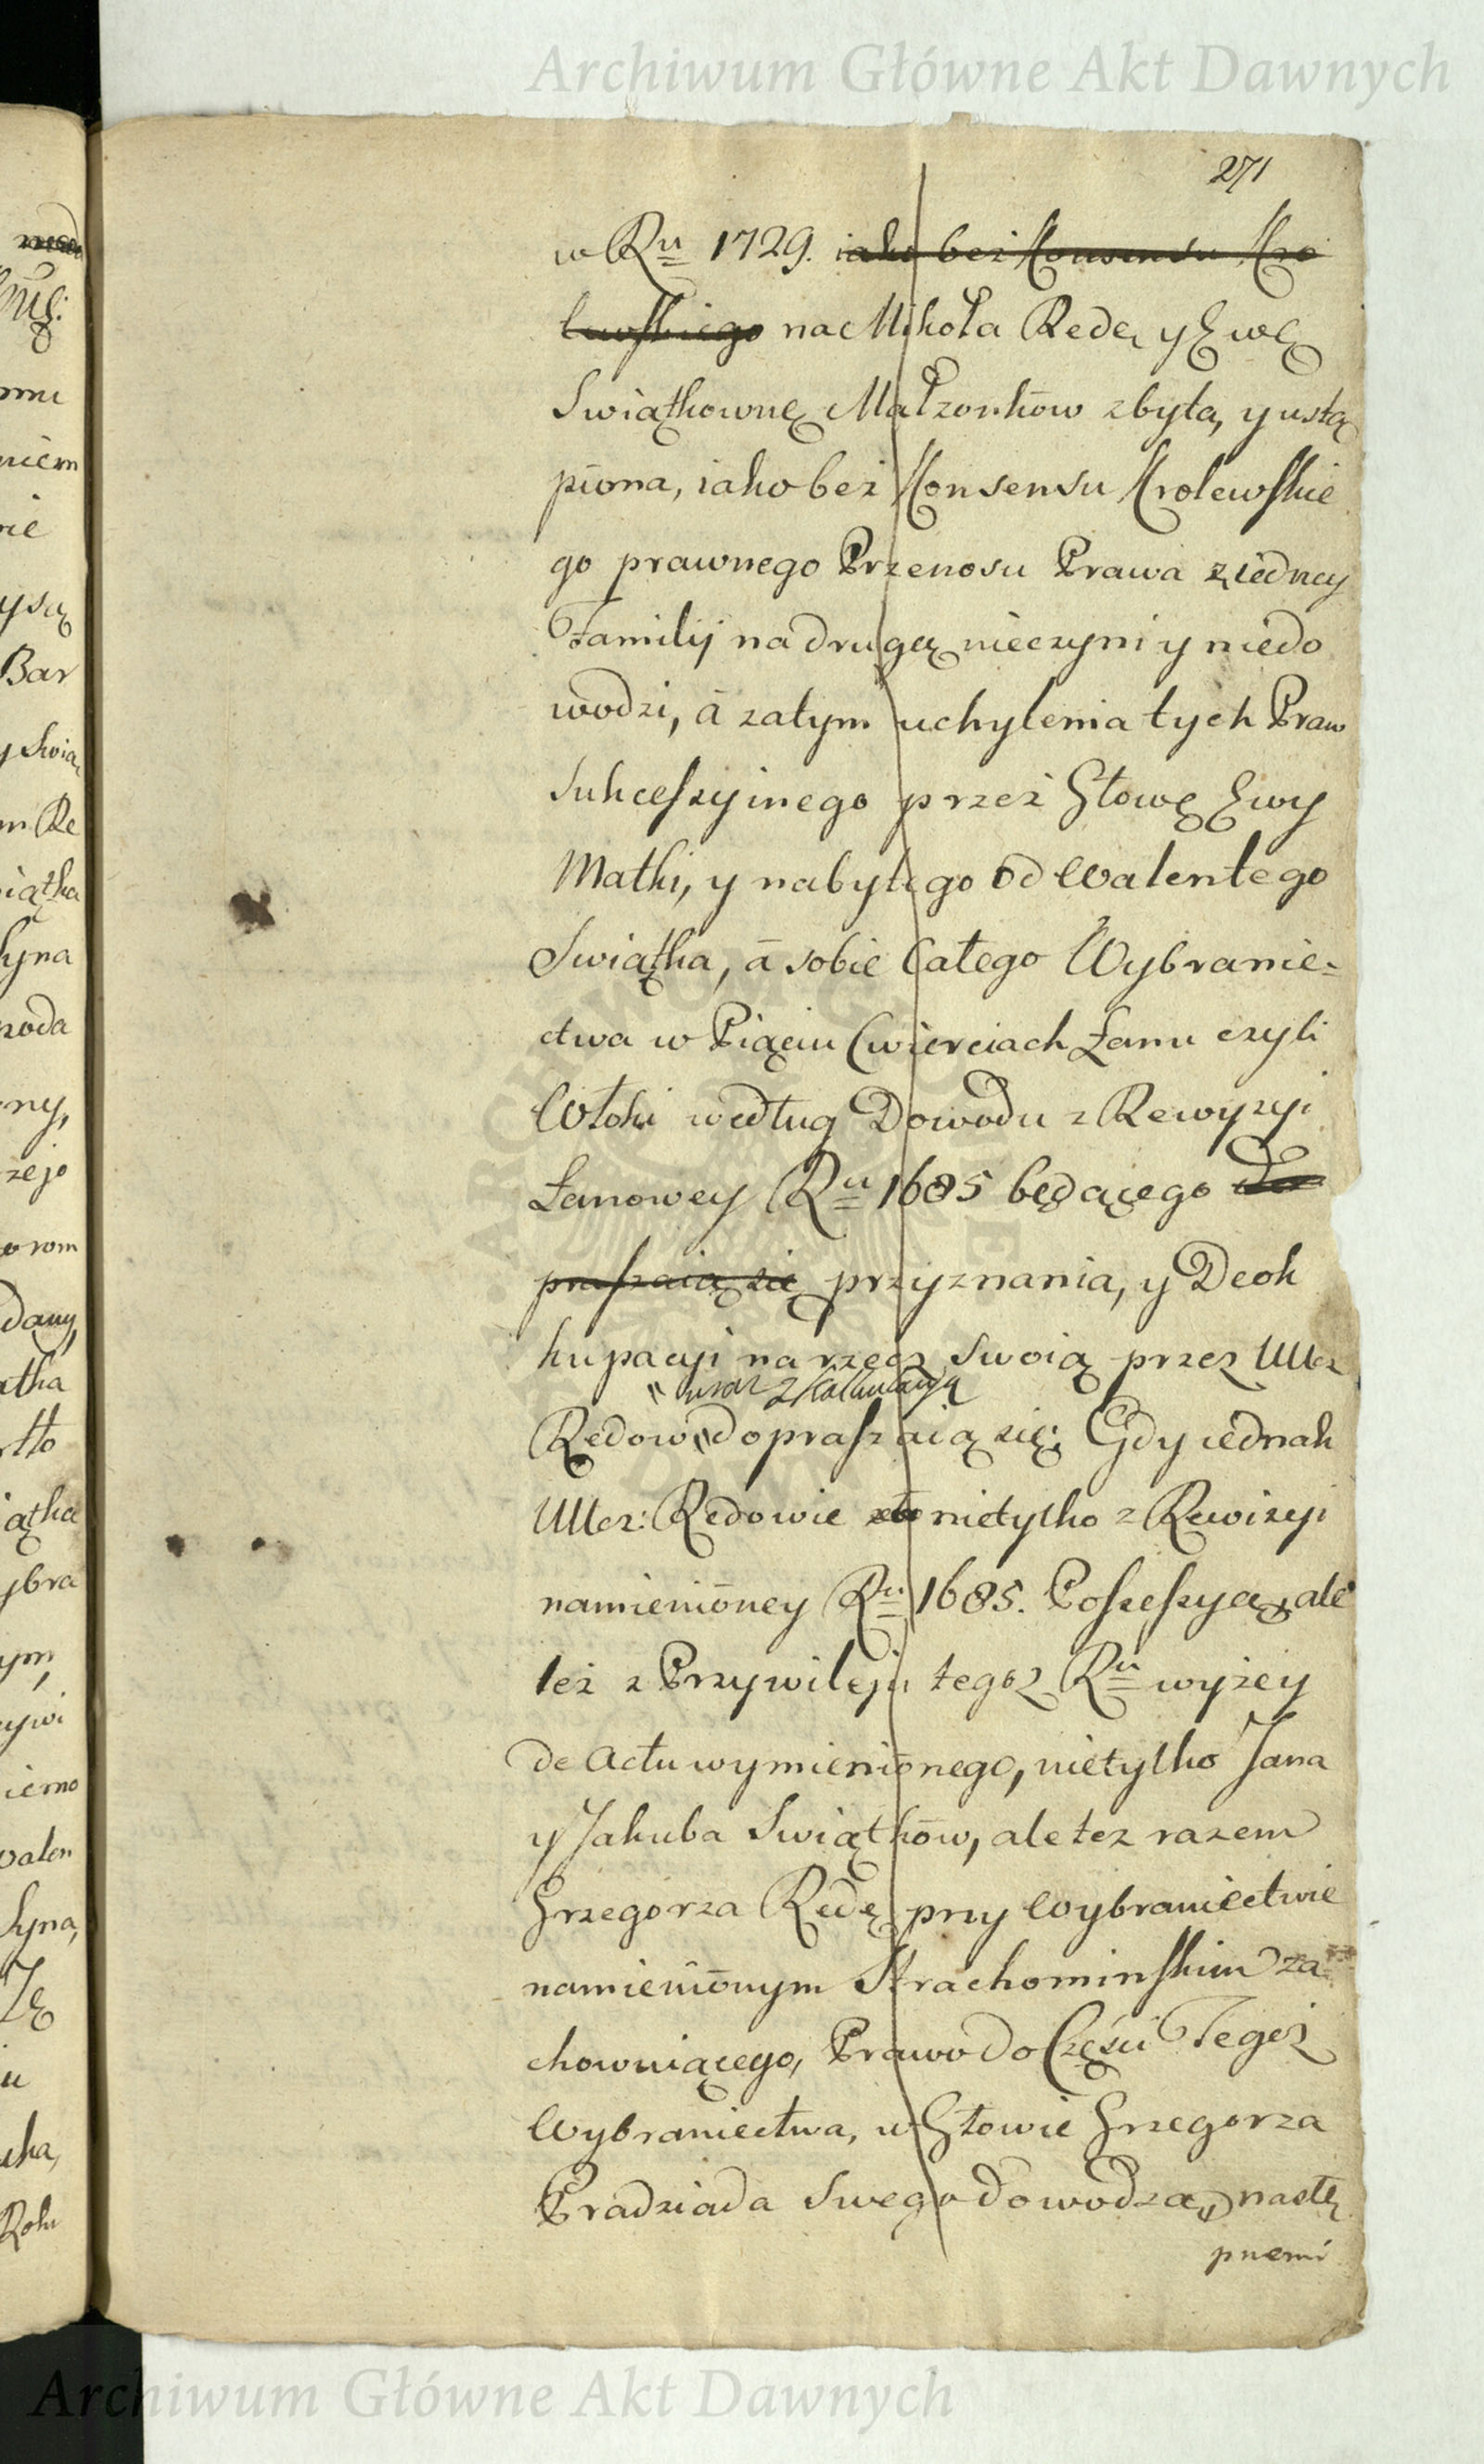 Archiwum Główne Akt Dawnych
271
w Ru 1729. iako bez Konsensu Kro
lewskiego na Mikoła Redę y Ewę
Swiątkownę Małzonków zbyta, y ustą
piona, iako bez Konsensu Krolewskie
go prawnego Przenosu Prawa z iedney
Familij na drugą nieczyni y niedo
wodzi, á zatym uchylenia tych Praw
Sukcessyinego przez Głowę Ewy
Matki, y nabytego od Walentego
Swiątka, á sobie Całego Wybranie=
ctwa w Piąciu Cwierciach Łanu czyli
Włoki według Dowodu z Rewyzyi
Łanowey Ru 1685 będącego do
praszaią się przyznania, y Deok
kupacyi na rzecz swoią przez Ucz
" wraz z Kalkulacyą
Redow " dopraszaią się; Gdy iednak
Ucz: Redowie nietylko z Rewizyi
namienióney Ru 1685. Possessyą, ale
też z Przywileju tegoz Ru wyżey
de Actu wymieniónego, nietylko Jana
y Jakuba Swiątków, ale tez razem
Grzegorza Redę przy Wybraniectwie
namieniónym Strachominskim za
chowuiącego, Prawo do Części Tegoż
Wybraniectwa, w Głowie Grzegorza
Pradziada Swego dowodzą, nastę
pnemi
mu
niem
nie
y są
Bar
y Swią
m Re
wiątka
Syna
ny,
rzejo
orom
dany,
atka
iątka
ybra
ym,
iemo
Walen
Syna,
Roku
Archiwum Główne Akt Dawnych